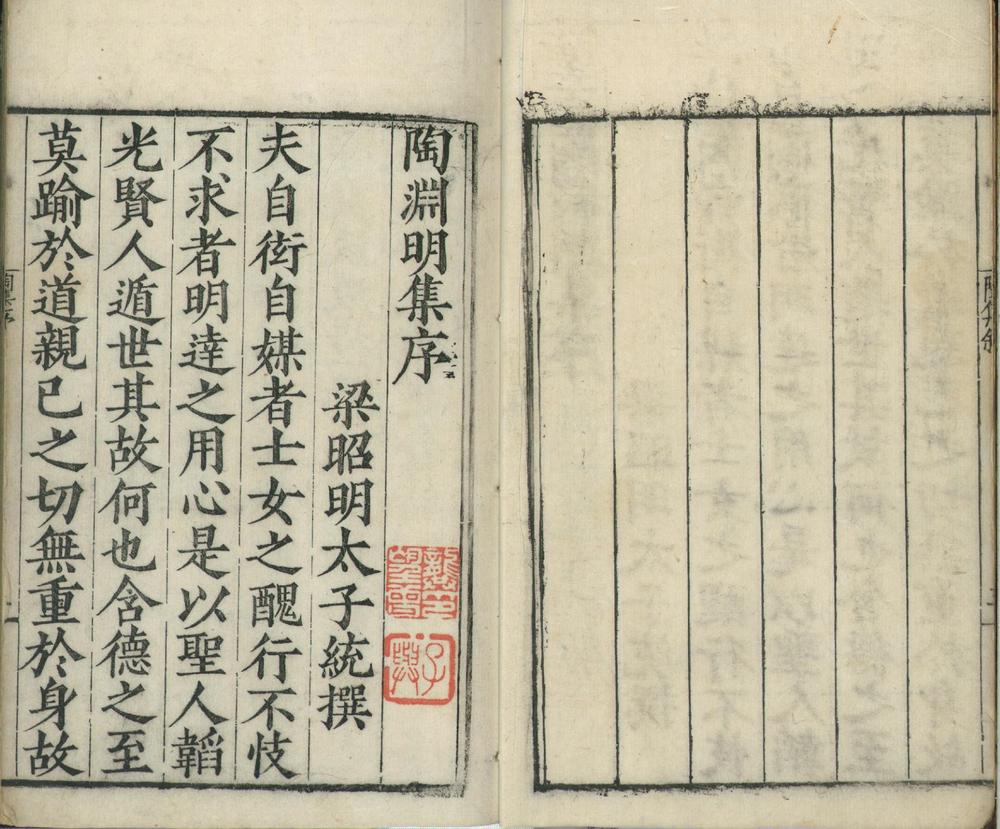 陶淵明集序
梁昭明太子統撰
夫自衒自媒者士女之醜行不忮
不求者明達之用心是以聖人韜
光賢人遁世其故何也含德之至
莫踰於道親己之切無重於身故
子興